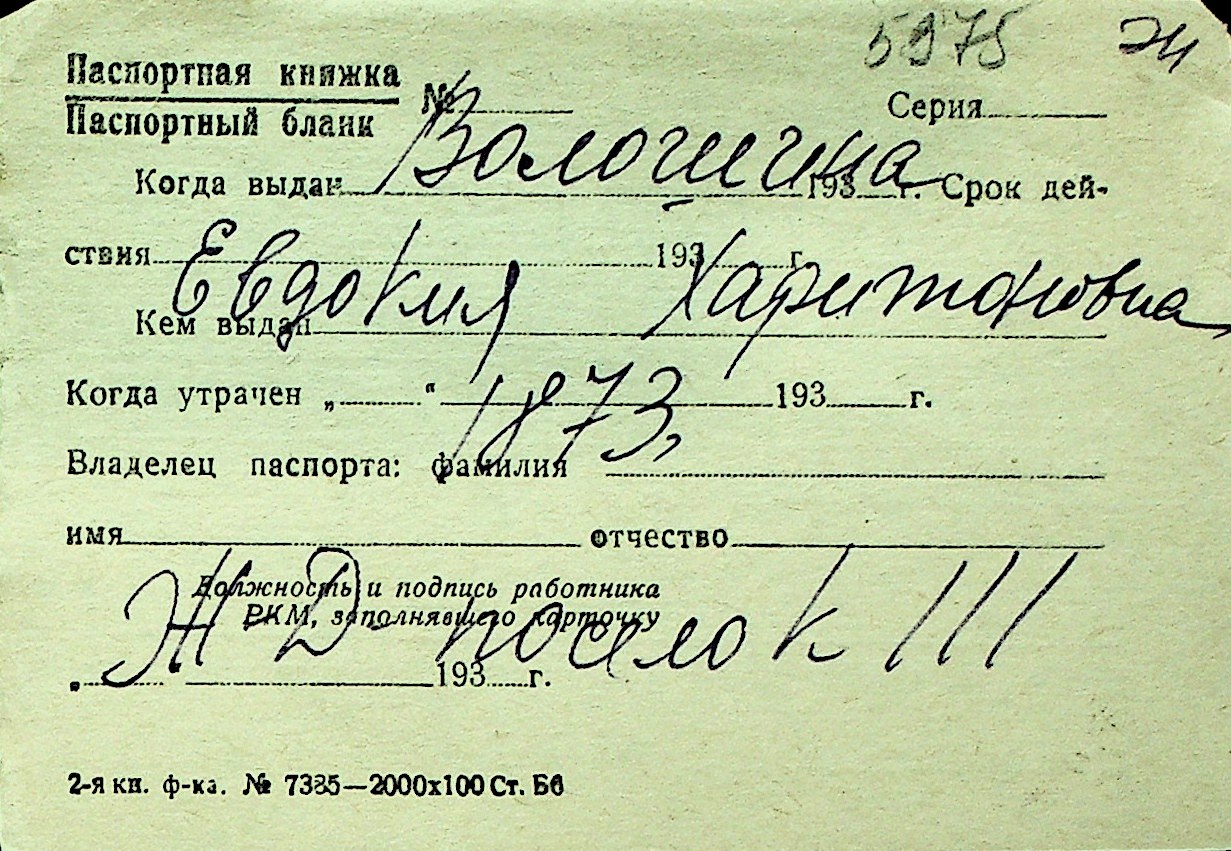 5975 эч
Паспортная книжка
Паспортный бланк
№ Серия
Волошина
Когда выдан 193 г. Срок дей-
ствия 193 г.
Евдокия Харитоновна
Кем выдан
Когда утрачен „ “ 193 г.
1873,
Владелец паспорта: фамилия
имя отчество
Должность и подпись работника
РКМ, заполнявшего карточку
Ж-Д- поселок III
„ “ 193 г.
2-я кн. ф-ка. № 7385—2000х100 Ст. Бб